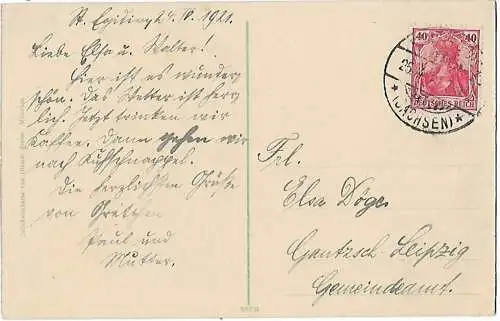 St. Egidien, d. 24.IV.1921.
Liebe Elsa u. Walter!
Hier ist es wunder
schön. Das Wetter ist herr
lich. Jetzt trinken wir
Kaffee. Dann gehen wir
nach Kuhschnappel.
Die herzlichsten Grüße
von Gretchen
Paul und
Mutter.
40 40
DEUTSCHES REICH
(SACHSEN)
Frl.
Elsa Döge
Gautzsch-Leipzig
Gemeindeamt.